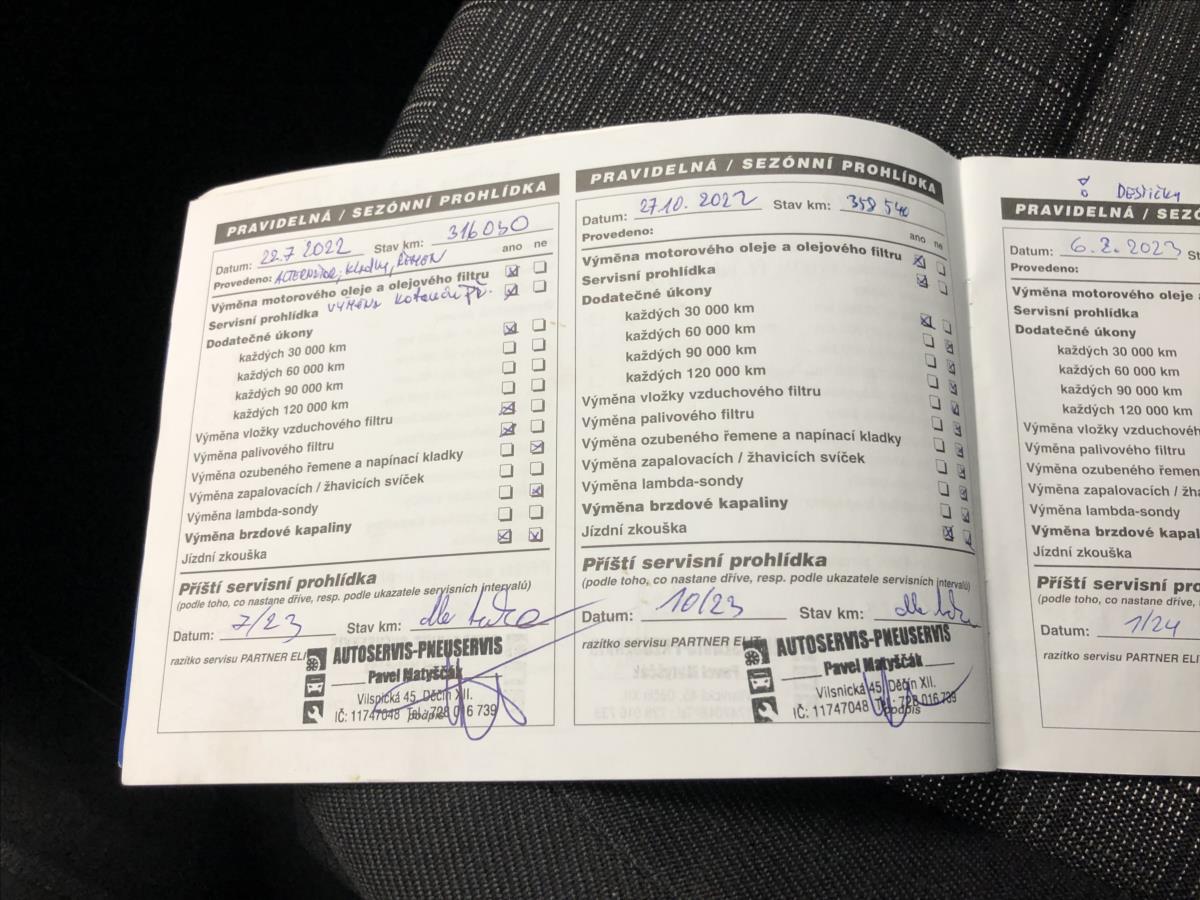 PRAVIDELNÁ / SEZÓNNÍ PROHLÍDKA
Datum: 22.7 2022 Stav km: 316030
Provedeno: ALTERNÁTOR, kladky, ŘEMEN
Výměna motorového oleje a olejového filtru
ano ne
Servisní prohlídka VÝMĚNA kotouče Př.
Dodatečné úkony
každých 30 000 km
každých 60 000 km
každých 90 000 km
každých 120 000 km
Výměna vložky vzduchového filtru
Výměna palivového filtru
Výměna ozubeného řemene a napínací kladky
Výměna zapalovacích / žhavicích svíček
Výměna lambda-sondy
Výměna brzdové kapaliny
Jízdní zkouška
Příští servisní prohlídka
(podle toho, co nastane dříve, resp. podle ukazatele servisních intervalů)
Datum: 7/23 Stav km: dle
razítko servisu PARTNER ELIT
AUTOSERVIS-PNEUSERVIS
Pavel Matyščák
Vilsnická 45, Děčín XII.
IČ: 11747048 Tel.: 728 016 739
podpis
PRAVIDELNÁ / SEZÓNNÍ PROHLÍDKA
Datum: 27.10. 2022 Stav km: 358 540
Provedeno:
ano ne
Výměna motorového oleje a olejového filtru
Servisní prohlídka
Dodatečné úkony
každých 30 000 km
každých 60 000 km
každých 90 000 km
každých 120 000 km
Výměna vložky vzduchového filtru
Výměna palivového filtru
Výměna ozubeného řemene a napínací kladky
Výměna zapalovacích / žhavicích svíček
Výměna lambda-sondy
Výměna brzdové kapaliny
Jízdní zkouška
Příští servisní prohlídka
(podle toho, co nastane dříve, resp. podle ukazatele servisních intervalů)
Datum: 10/23 Stav km: dle
razítko servisu PARTNER ELIT
AUTOSERVIS-PNEUSERVIS
Pavel Matyščák
Vilsnická 45, Děčín XII.
IČ: 11747048 Tel.: 728 016 739
podpis
DESTIČKY
PRAVIDELNÁ / SEZÓ
Datum: 6.2.2023
Provedeno:
Výměna motorového oleje a
Servisní prohlídka
Dodatečné úkony
každých 30 000 km
každých 60 000 km
každých 90 000 km
každých 120 000 km
Výměna vložky vzduchovéh
Výměna palivového filtru
Výměna ozubeného řemen
Výměna zapalovacích / žha
Výměna lambda-sondy
Výměna brzdové kapal
Jízdní zkouška
Příští servisní pro
(podle toho, co nastane dří
Datum: 1/24
razítko servisu PARTNER ELI